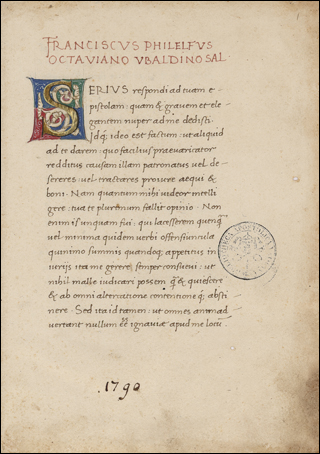 FRANCISCVS PHILELFVS
OCTAVIANO VBALDINO SAL.
SERIVS respondi ad tuam e-
pistolam: quam & gravem et ele-
gantem nuper ad me dedisti.
Idq; ideo est factum: ut aliquid
ad te darem: quo facilius praevaricator
redditus causam illam patronatus vel de-
sereres: vel tractares proiure aequi &
boni. Nam quantum mihi videor intelli-
gere: tua te plurimum fallit opinio. Non
enim is unquam fui: qui lacesserem quenq
vel minima quidem verbi offensiuncula
quinimo summis quandoq; appetitus in-
iurijs ita me gerere semper consuevi: ut
nihil malle iudicari possem q & quiescere
& ab omni altercatione contentione q; absti
nere. Sed ita id tamen: ut omnes animad
vertant nullum eē ignaviae apud me locū
1790